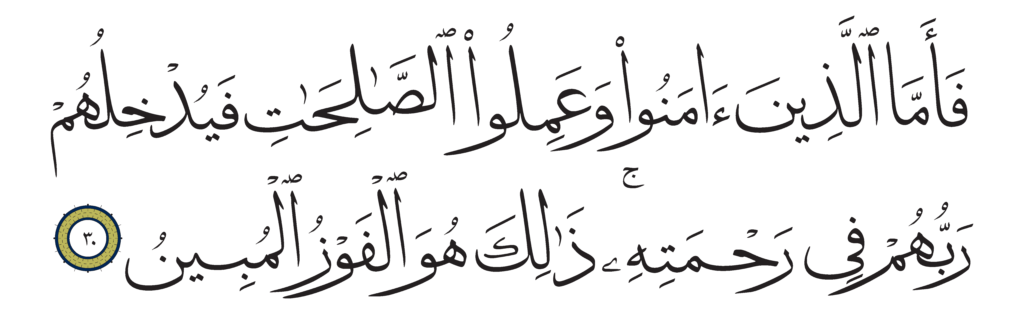 فَأَمَّا ٱلَّذِينَ ءَامَنُوا۟ وَعَمِلُوا۟ ٱلصَّٰلِحَٰتِ فَيُدْخِلُهُمْ
رَبُّهُمْ فِى رَحْمَتِهِۦ ۚ ذَٰلِكَ هُوَ ٱلْفَوْزُ ٱلْمُبِينُ ٣٠